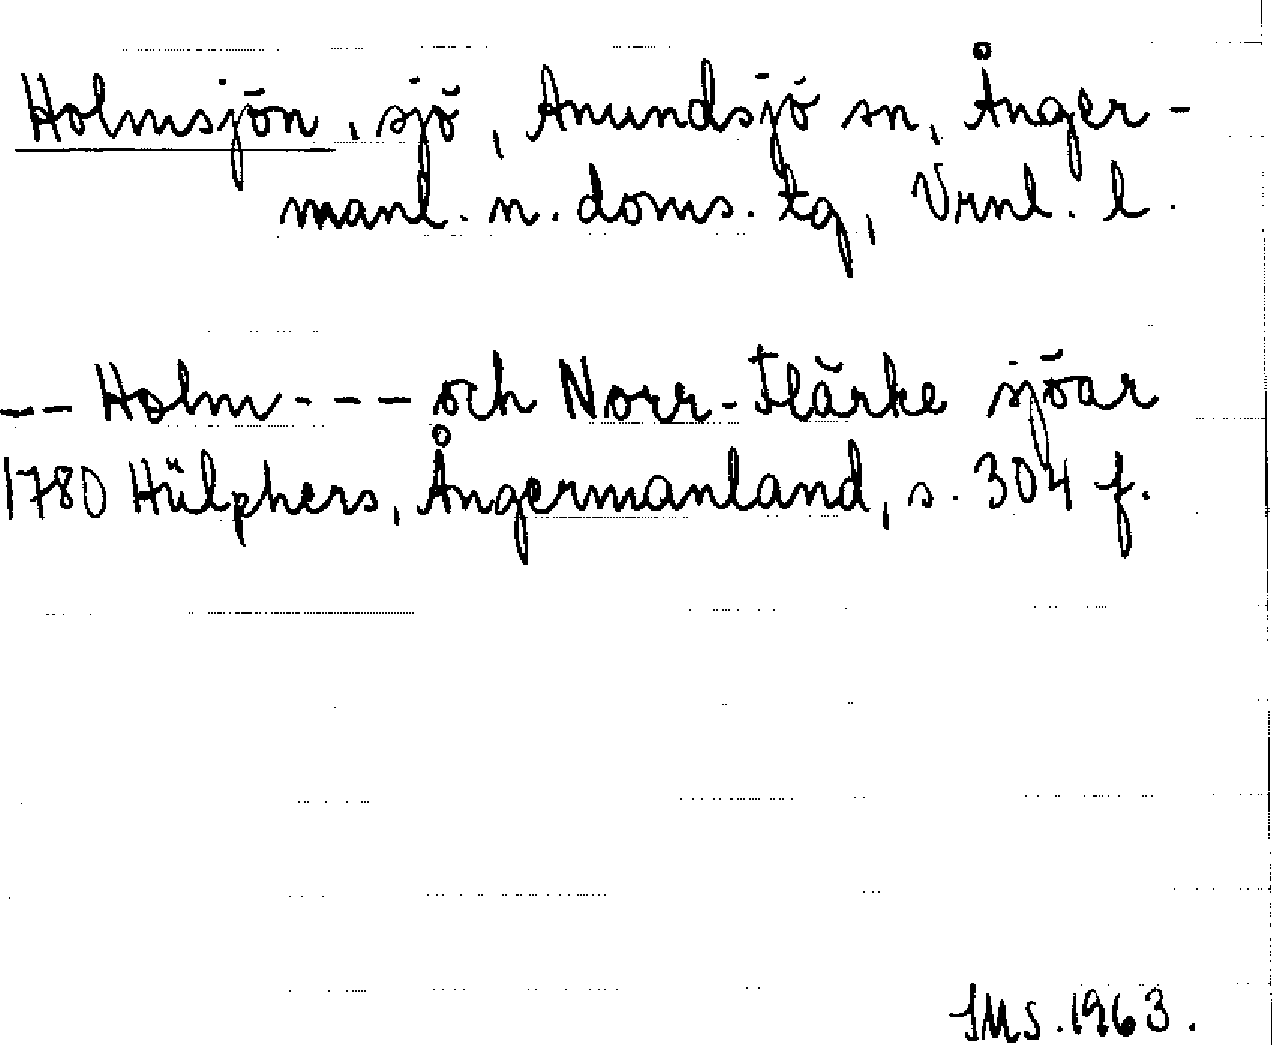 Holmsjön, sjö, Anundsjö sn, Ånger-
manl. n. doms. tg, Vrnl. l.
-- Holm --- och Norr-Flärke sjöar
1780 Hülphers, Ångermanland, s. 304 f.
SMs. 1963.